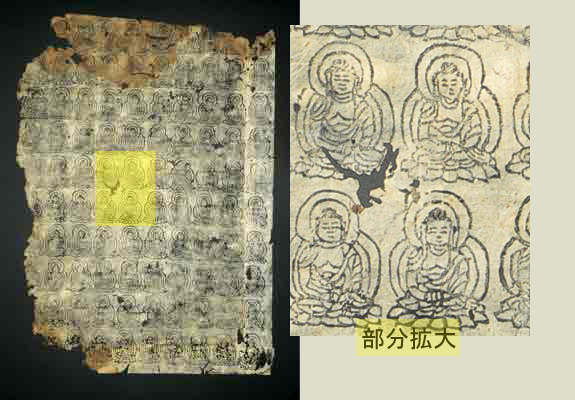 部分拡大